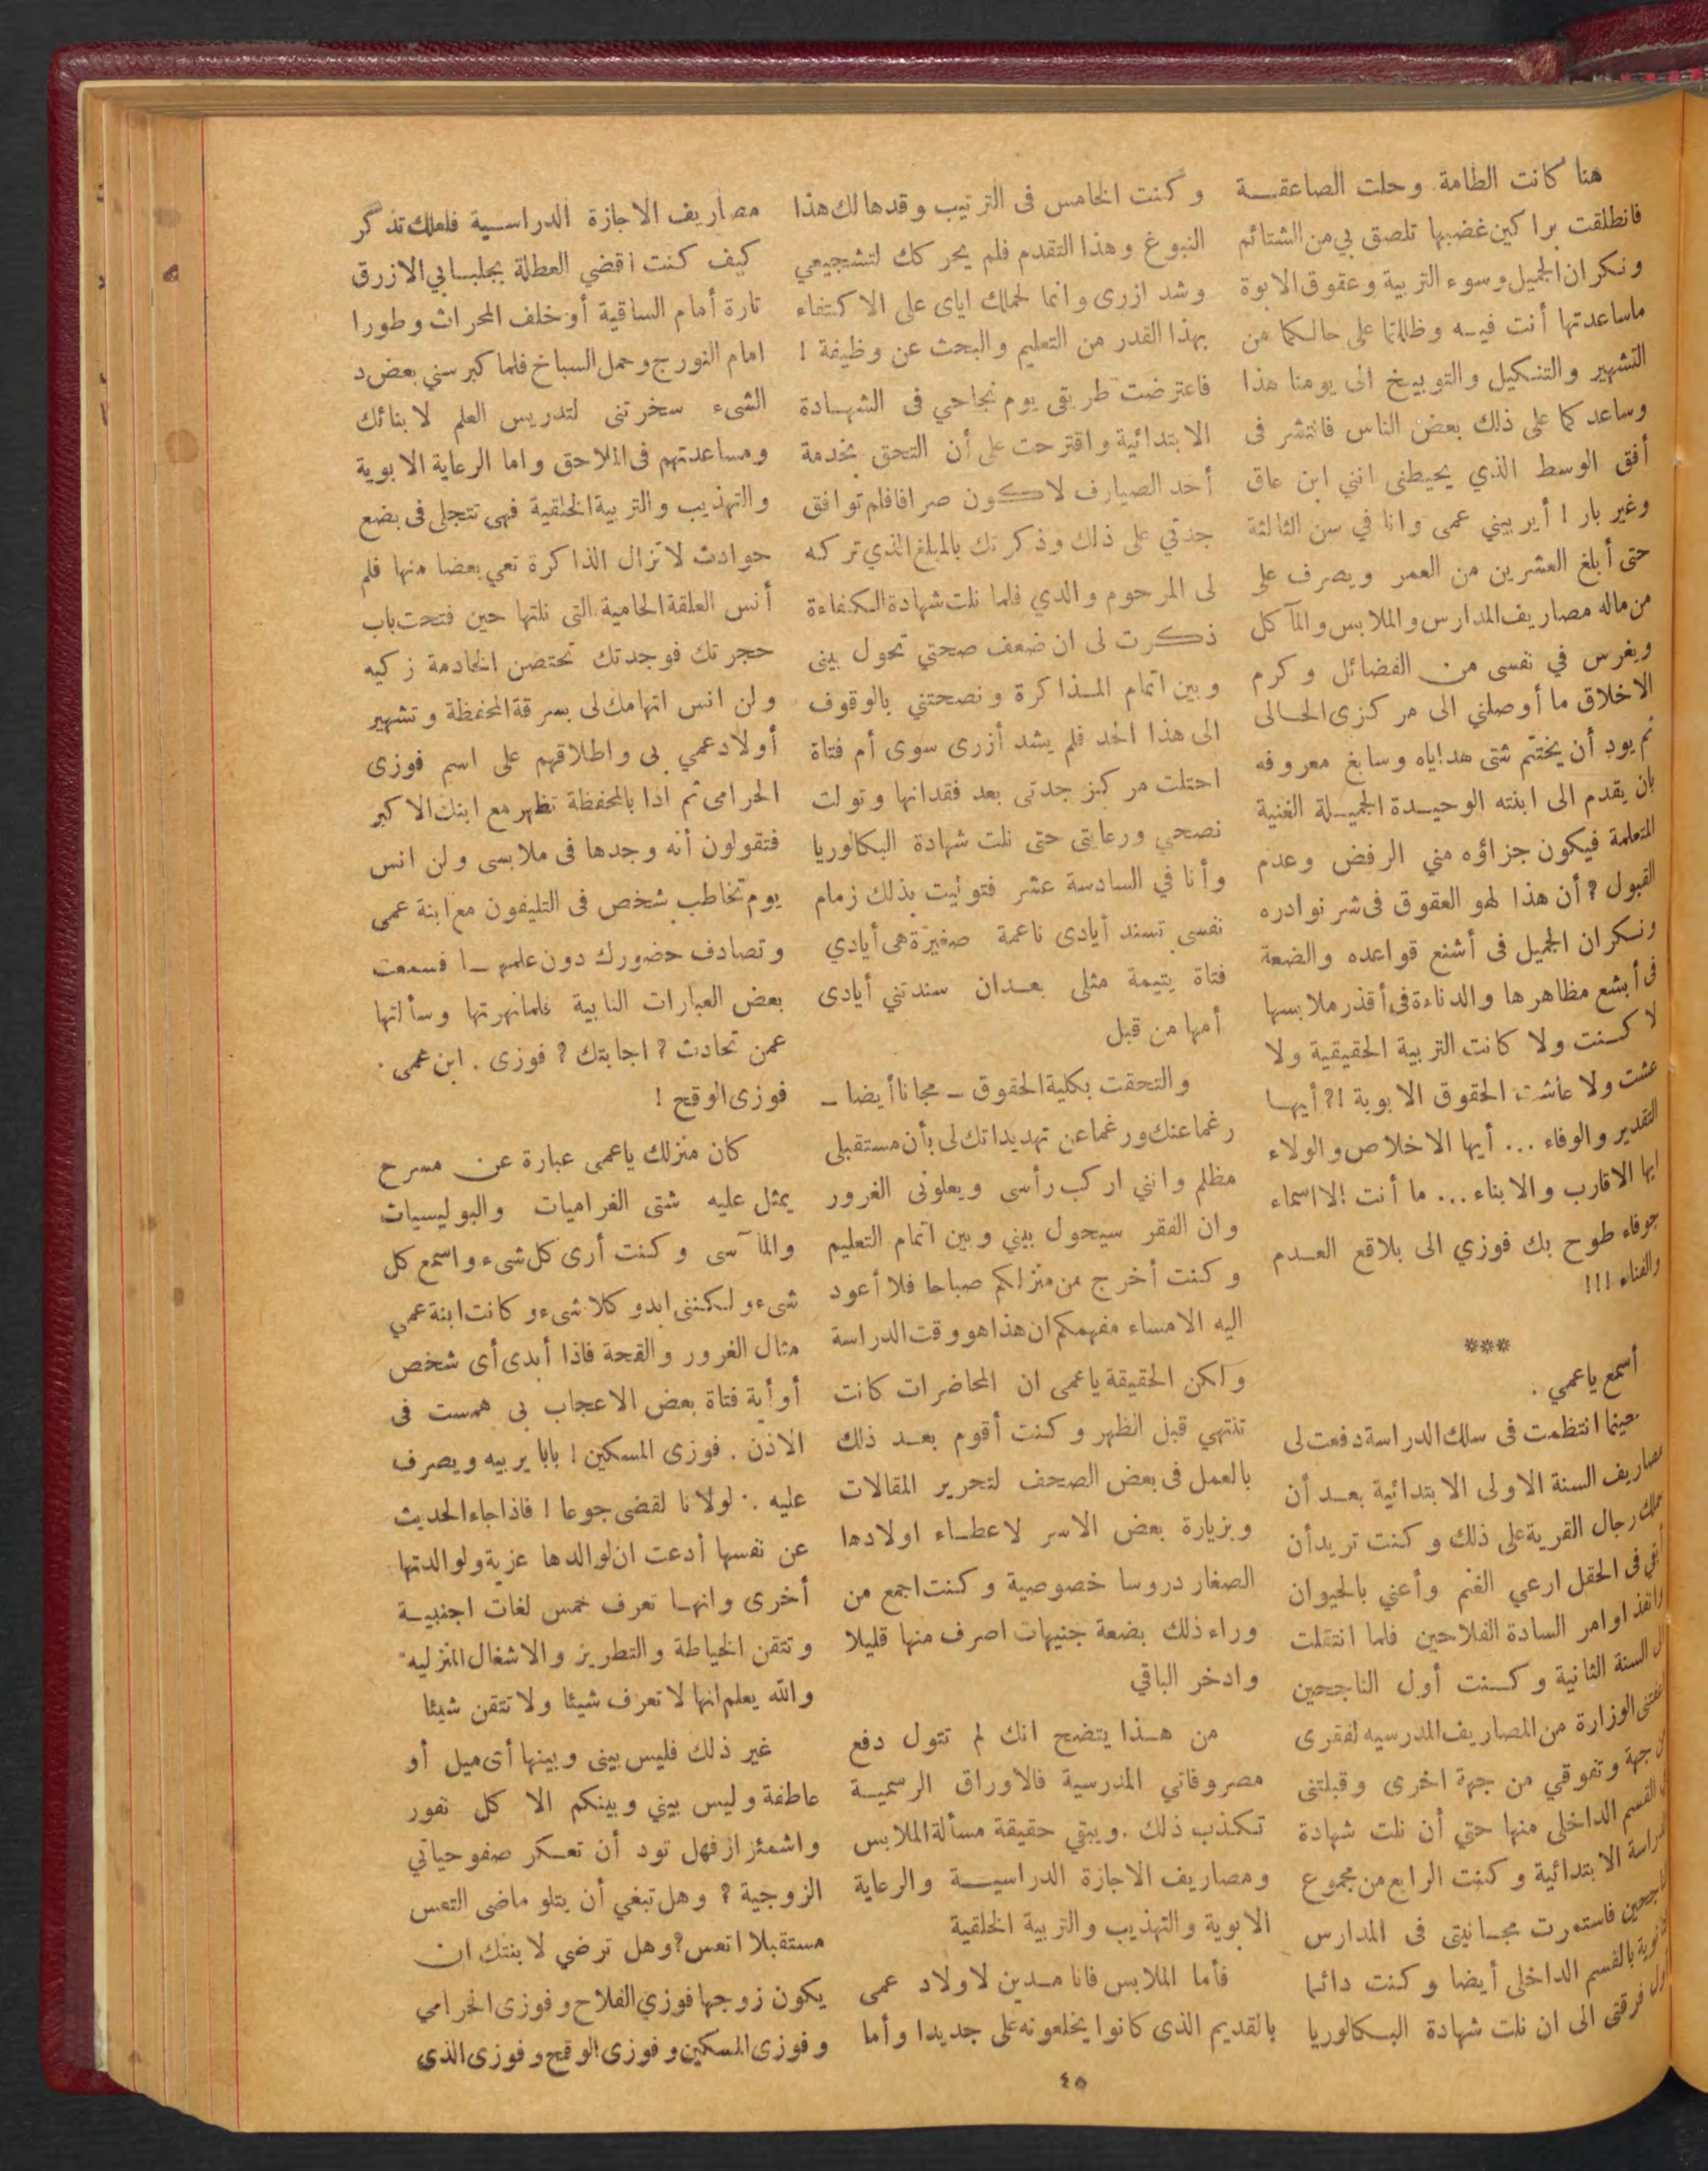 هنا كانت الطامة. وحلت الصاعقة
فانطلقت براكين غضبها تلصق بي من الشتائم
ونكران الجميل وسوء التربية وعقوق الابوة
ماساعدتها أنت فيه وظللتما على حالكما من
التشهير والتنكيل والتوبيخ الى يومنا هذا
وساعدكما على ذلك بعض الناس فانتشر فى
أفق الوسط الذي يحيطنى اننى ابن عاق
وغير بار ! أيربيني عمى وانا في سن الثالثة
حتى أبلغ العشرين من العمر ويصرف على
من ماله مصاريف المدارس والملابس والمآكل
ويغرس في نفسى من الفضائل وكرم
الاخلاق ما أوصلني الى مركزى الحالى
ثم يود أن يختتم شتى هداياه وسابغ معروفه
بان يقدم الى ابنته الوحيدة الجميلة الغنية
المتعلمة فيكون جزاؤه مني الرفض وعدم
القبول ? أن هذا لهو العقوق فى شر نوادره
ونكران الجميل فى أشنع قواعده والضعة
فى أبشع مظاهرها والدناءة فى أقذر ملابسها
لا كنت ولا كانت التربية الحقيقية ولا
عشت ولا عاشت الحقوق الابوية !? أيها
التقدير والوفاء ... أيها الاخلاص والولاء
ايها الاقارب والابناء ... ما أنت إلا اسماء
جوفاء طوح بك فوزي الى بلاقع العدم
والفناء !!!
***
أسمع ياعمي .
حينما انتظمت فى سلك الدراسة دفعت لى
مصاريف السنة الاولى الابتدائية بعد أن
رجال القرية على ذلك وكنت تريد أن
فى الحقل ارعي الغنم وأعني بالحيوان
وانفذ اوامر السادة الفلاحين فلما انتقلت
الى السنة الثانية وكنت أول الناجحين
الوزارة من المصاريف المدرسيه لفقرى
من جهة وتفوقي من جهة اخرى وقبلتنى
القسم الداخلى منها حتي أن نلت شهادة
الدراسة الابتدائية وكنت الرابع من مجموع
الناجحين فاستمرت مجانيتى فى المدارس
الثانوية بالقسم الداخلى أيضا وكنت دائما
اول فرقتى الى ان نلت شهادة البكالوريا
وكنت الخامس فى الترتيب وقدها لك هذا
النبوغ وهذا التقدم فلم يحركك لتشجيعي
وشد ازرى وانما لحملك اياى على الاكتفاء
بهذا القدر من التعليم والبحث عن وظيفة !
فاعترضت طريقى يوم نجاحي فى الشهادة
الابتدائية واقترحت على أن التحق بخدمة
أحد الصيارف لاكون صرافا فلم توافق
جدتي على ذلك وذكرتك بالمبلغ الذي تركه
لى المرحوم والدي فلما نلت شهادة الكفاءة
ذكرت لى ان ضعف صحتي تحول بينى
وبين اتمام المذاكرة ونصحتني بالوقوف
الى هذا الحد فلم يشد أزرى سوى أم فتاة
احتلت مركز جدتى بعد فقدانها وتولت
نصحي ورعايتى حتى نلت شهادة البكالوريا
وأنا في السادسة عشر فتوليت بذلك زمام
نفسى تسند أيادى ناعمة صغيرة هى أيادي
فتاة يتيمة مثلى بعدان سندتني أيادى
أمها من قبل
والتحقت بكلية الحقوق ـ مجانا أيضا ـ
رغما عنك ورغما عن تهديداتك لى بأن مستقبلى
مظلم وانني اركب رأسى ويعلونى الغرور
وان الفقر سيحول بيني وبين اتمام التعليم
وكنت أخرج من منزلكم صباحا فلا أعود
اليه الا مساء مفهمكم ان هذا هو وقت الدراسة
ولكن الحقيقة ياعمى ان المحاضرات كانت
تنتهي قبل الظهر وكنت أقوم بعد ذلك
بالعمل فى بعض الصحف لتحرير المقالات
وبزيارة بعض الاسر لاعطاء اولادها
الصغار دروسا خصوصية وكنت اجمع من
وراء ذلك بضعة جنيهات اصرف منها قليلا
وادخر الباقي
من هذا يتضح انك لم تتول دفع
مصروفاتي المدرسية فالاوراق الرسمية
تكذب ذلك . ويبقي حقيقة مسألة الملابس
ومصاريف الاجازة الدراسية والرعاية
الابوية والتهذيب والتربية الخلقية
فأما الملابس فانا مدين لاولاد عمى
بالقديم الذى كانوا يخلعونه على جديدا وأما
مصاريف الاجازة الدراسية فلعلك تذكر
كيف كنت اقضي العطلة بجلبابي الازرق
تارة أمام الساقية أو خلف المحراث وطورا
امام النورج وحمل السباخ فلما كبر سني بعض د
الشىء سخرتنى لتدريس العلم لابنائك
ومساعدتهم فى الملاحق واما الرعاية الابوية
والتهذيب والتربية الخلقية فهى تتجلى فى بضع
حوادث لاتزال الذاكرة تعي بعضا منها فلم
أنس العلقة الحامية التى نلتها حين فتحت باب
حجرتك فوجدتك تحتضن الخادمة زكيه
ولن انس اتهامك لى بسرقة المحفظة وتشهير
أولاد عمي بى واطلاقهم على اسم فوزى
الحرامى ثم اذا بالمحفظة تظهر مع ابنك الاكبر
فتقولون أنه وجدها فى ملابسى ولن انس
يوم تخاطب شخص فى التليفون مع ابنة عمى
وتصادف حضورك دون علمها فسمعت
بعض العبارات النابية فلما نهرتها وسألتها
عمن تحادث ? اجابتك ? فوزى . ابن عمى .
فوزى الوقح !
كان منزلك ياعمى عبارة عن مسرح
يمثل عليه شتى الغراميات والبوليسيات
والمآسى وكنت أرى كل شىء واسمع كل
شىء ولكننى ابدو كلا شىء وكانت ابنة عمي
مثال الغرور والقحة فاذا أبدى أى شخص
أو أية فتاة بعض الاعجاب بى همست فى
الاذن . فوزى المسكين ! بابا يربيه ويصرف
عليه . لولانا لقضى جوعا ! فاذا جاء الحديث
عن نفسها أدعت ان لوالدها عزبة ولوالدتها
أخرى وانها تعرف خمس لغات اجنبية
وتتقن الخياطة والتطريز والاشغال المنزليه
والله يعلم انها لا تعرف شيئا ولا تتقن شيئا
غير ذلك فليس بينى وبينها أى ميل أو
عاطفة وليس بيني وبينكم الا كل نفور
واشمئزاز فهل تود أن تعكر صفو حياتي
الزوجية ? وهل تبغي أن يتلو ماضى التعس
مستقبلا اتعس ? وهل ترضي لابنتك ان
يكون زوجها فوزي الفلاح وفوزى الحرامي
وفوزى المسكين وفوزى الوقح وفوزى الذى
٤٥